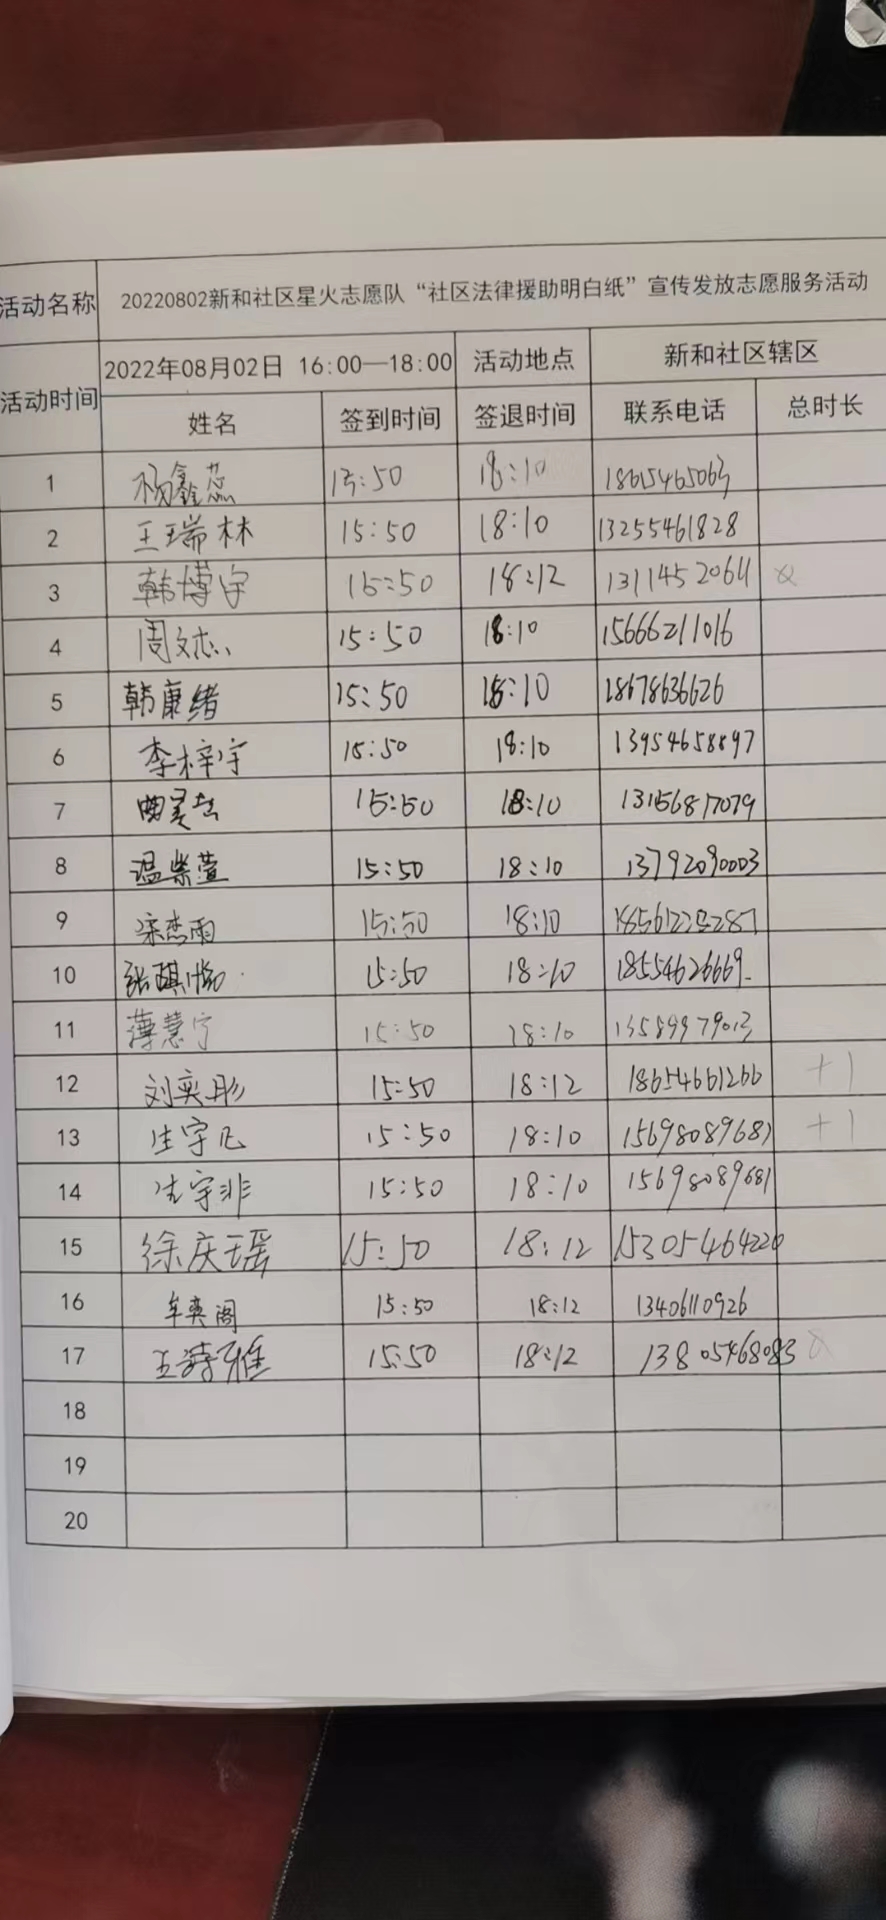 活动名称 20220802新和社区星火志愿队“社区法律援助明白纸”宣传发放志愿服务活动
活动时间 2022年08月02日 16:00—18:00 活动地点 新和社区辖区
姓名 签到时间 签退时间 联系电话 总时长
1 杨鑫蕊 15:50 18:10 18615465063
2 王瑞林 15:50 18:10 13255461828
3 韩博宇 15:50 18:12 13114520611
4 周文杰 15:50 18:10 15666211016
5 韩康绪 15:50 18:10 18678636626
6 李梓宇 15:50 18:10 13954658897
7 15:50 18:10 13156817079
8 温紫萱 15:50 18:10 13792090003
9 15:50 18:10
10 15:50 18:10 18554626669
11 薄慧宁 15:50 18:10 13589979013
12 刘奕彤 15:50 18:12 18654661266 +1
13 生宇飞 15:50 18:10 15698089681 +1
14 生宇非 15:50 18:10 15698089681
15 徐庆瑶 15:50 18:12 15305464220
16 牟奕阁 15:50 18:12 13406110926
17 王诗雅 15:50 18:12 13805468083
18
19
20